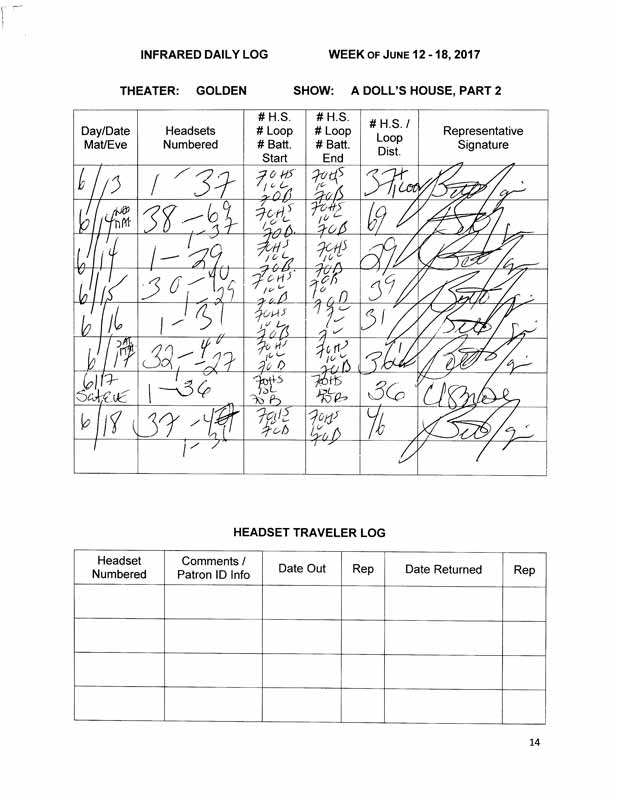 INFRARED DAILY LOG WEEK OF JUNE 12 - 18, 2017
THEATER: GOLDEN SHOW: A DOLL'S HOUSE, PART 2
Day/Date Mat/Eve Headsets Numbered # H.S. # Loop # Batt. Start # H.S. # Loop # Batt. End # H.S. / Loop Dist. Representative Signature
6/13 1 - 37 70HS 10L 70B 70HS 70B 37+
6/14 WED MAT 38 - 69 70HS 10L 70B 70HS 10L 70B 69
1 - 37
6/14 1 - 29 70HS 10L 70B 70HS 10L 70B 29
6/15 30 - 40 70HS 10L 70B 39
1 - 29
6/16 1 - 31 70HS 10L 70B 31
6/17 SAT MAT 32 - 40 70HS 10L 70B 70HS 10L 70B
1 - 27
6/17 Sat EVE 1 - 36 70HS 70B 70HS 36
6/18 37 - 70HS 70B 70HS 10L 70B
HEADSET TRAVELER LOG
Headset Numbered Comments / Patron ID Info Date Out Rep Date Returned Rep
14